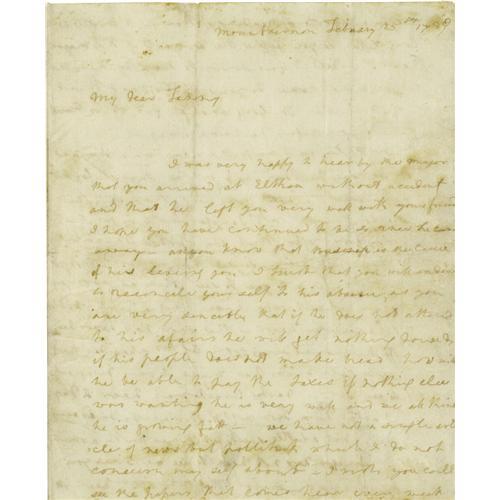 Mount vernon February 25th 1789
My Dear Fanny
I was very happy to hear by the major
that you arrived at Eltham without accident
and that he left you very well with your friends
I hope you have continued to be so since he came
away - as you know that business is the cause
of his leaving you I trust that you will endeavor
to reconcile yourself to his absence, as you
are very sincibly that if he does not attend
to his affairs he will get nothing done
if his people does not make bread how will
he be able to pay the taxes if nothing else
was wanting he is very well and we all think
he is growing fatt - we have not a single arti
cle of news but pollitick which I do not
concern my self about - I wish you could
see the papers that comes here every week